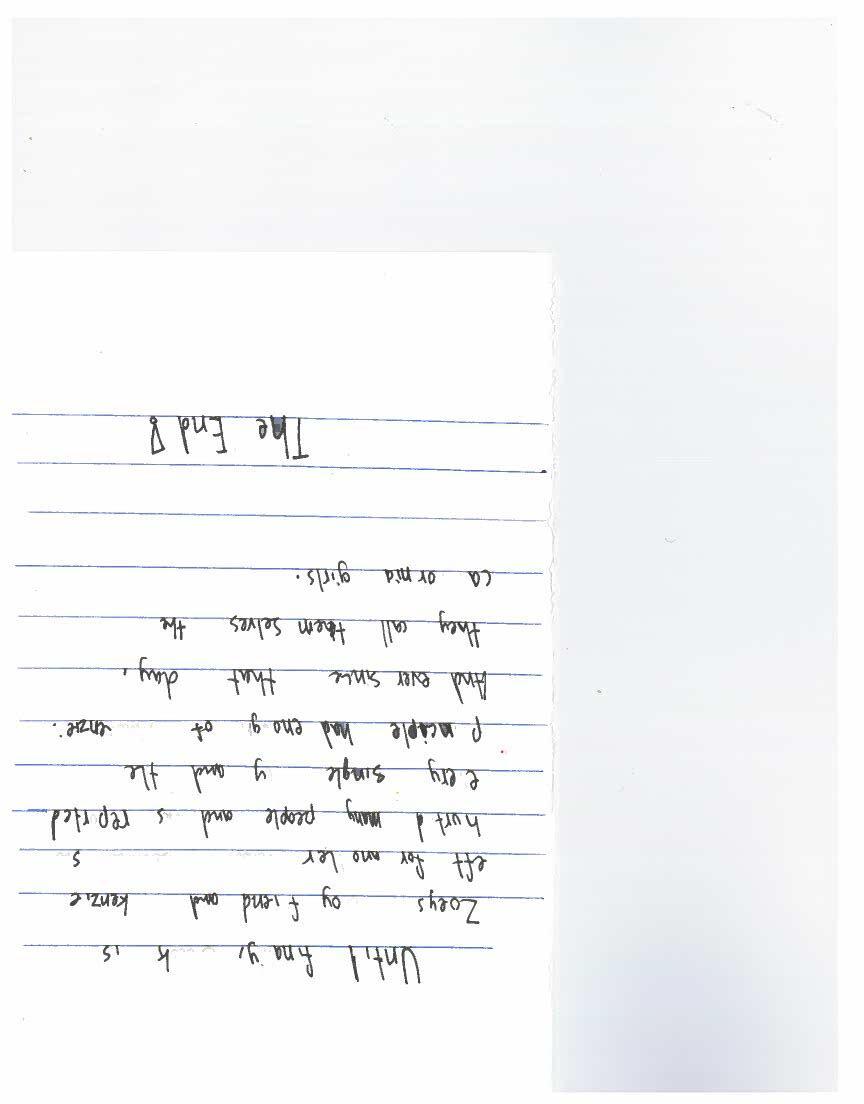 Until fina y, k is
Zoeys oy f iend and kenzie
eft for ano her s
hurt d many people and s reported
e ery single y and the
P nciple had eno g of enzie.
And ever since that day,
they call them selves the
ca or nia girls.
The End